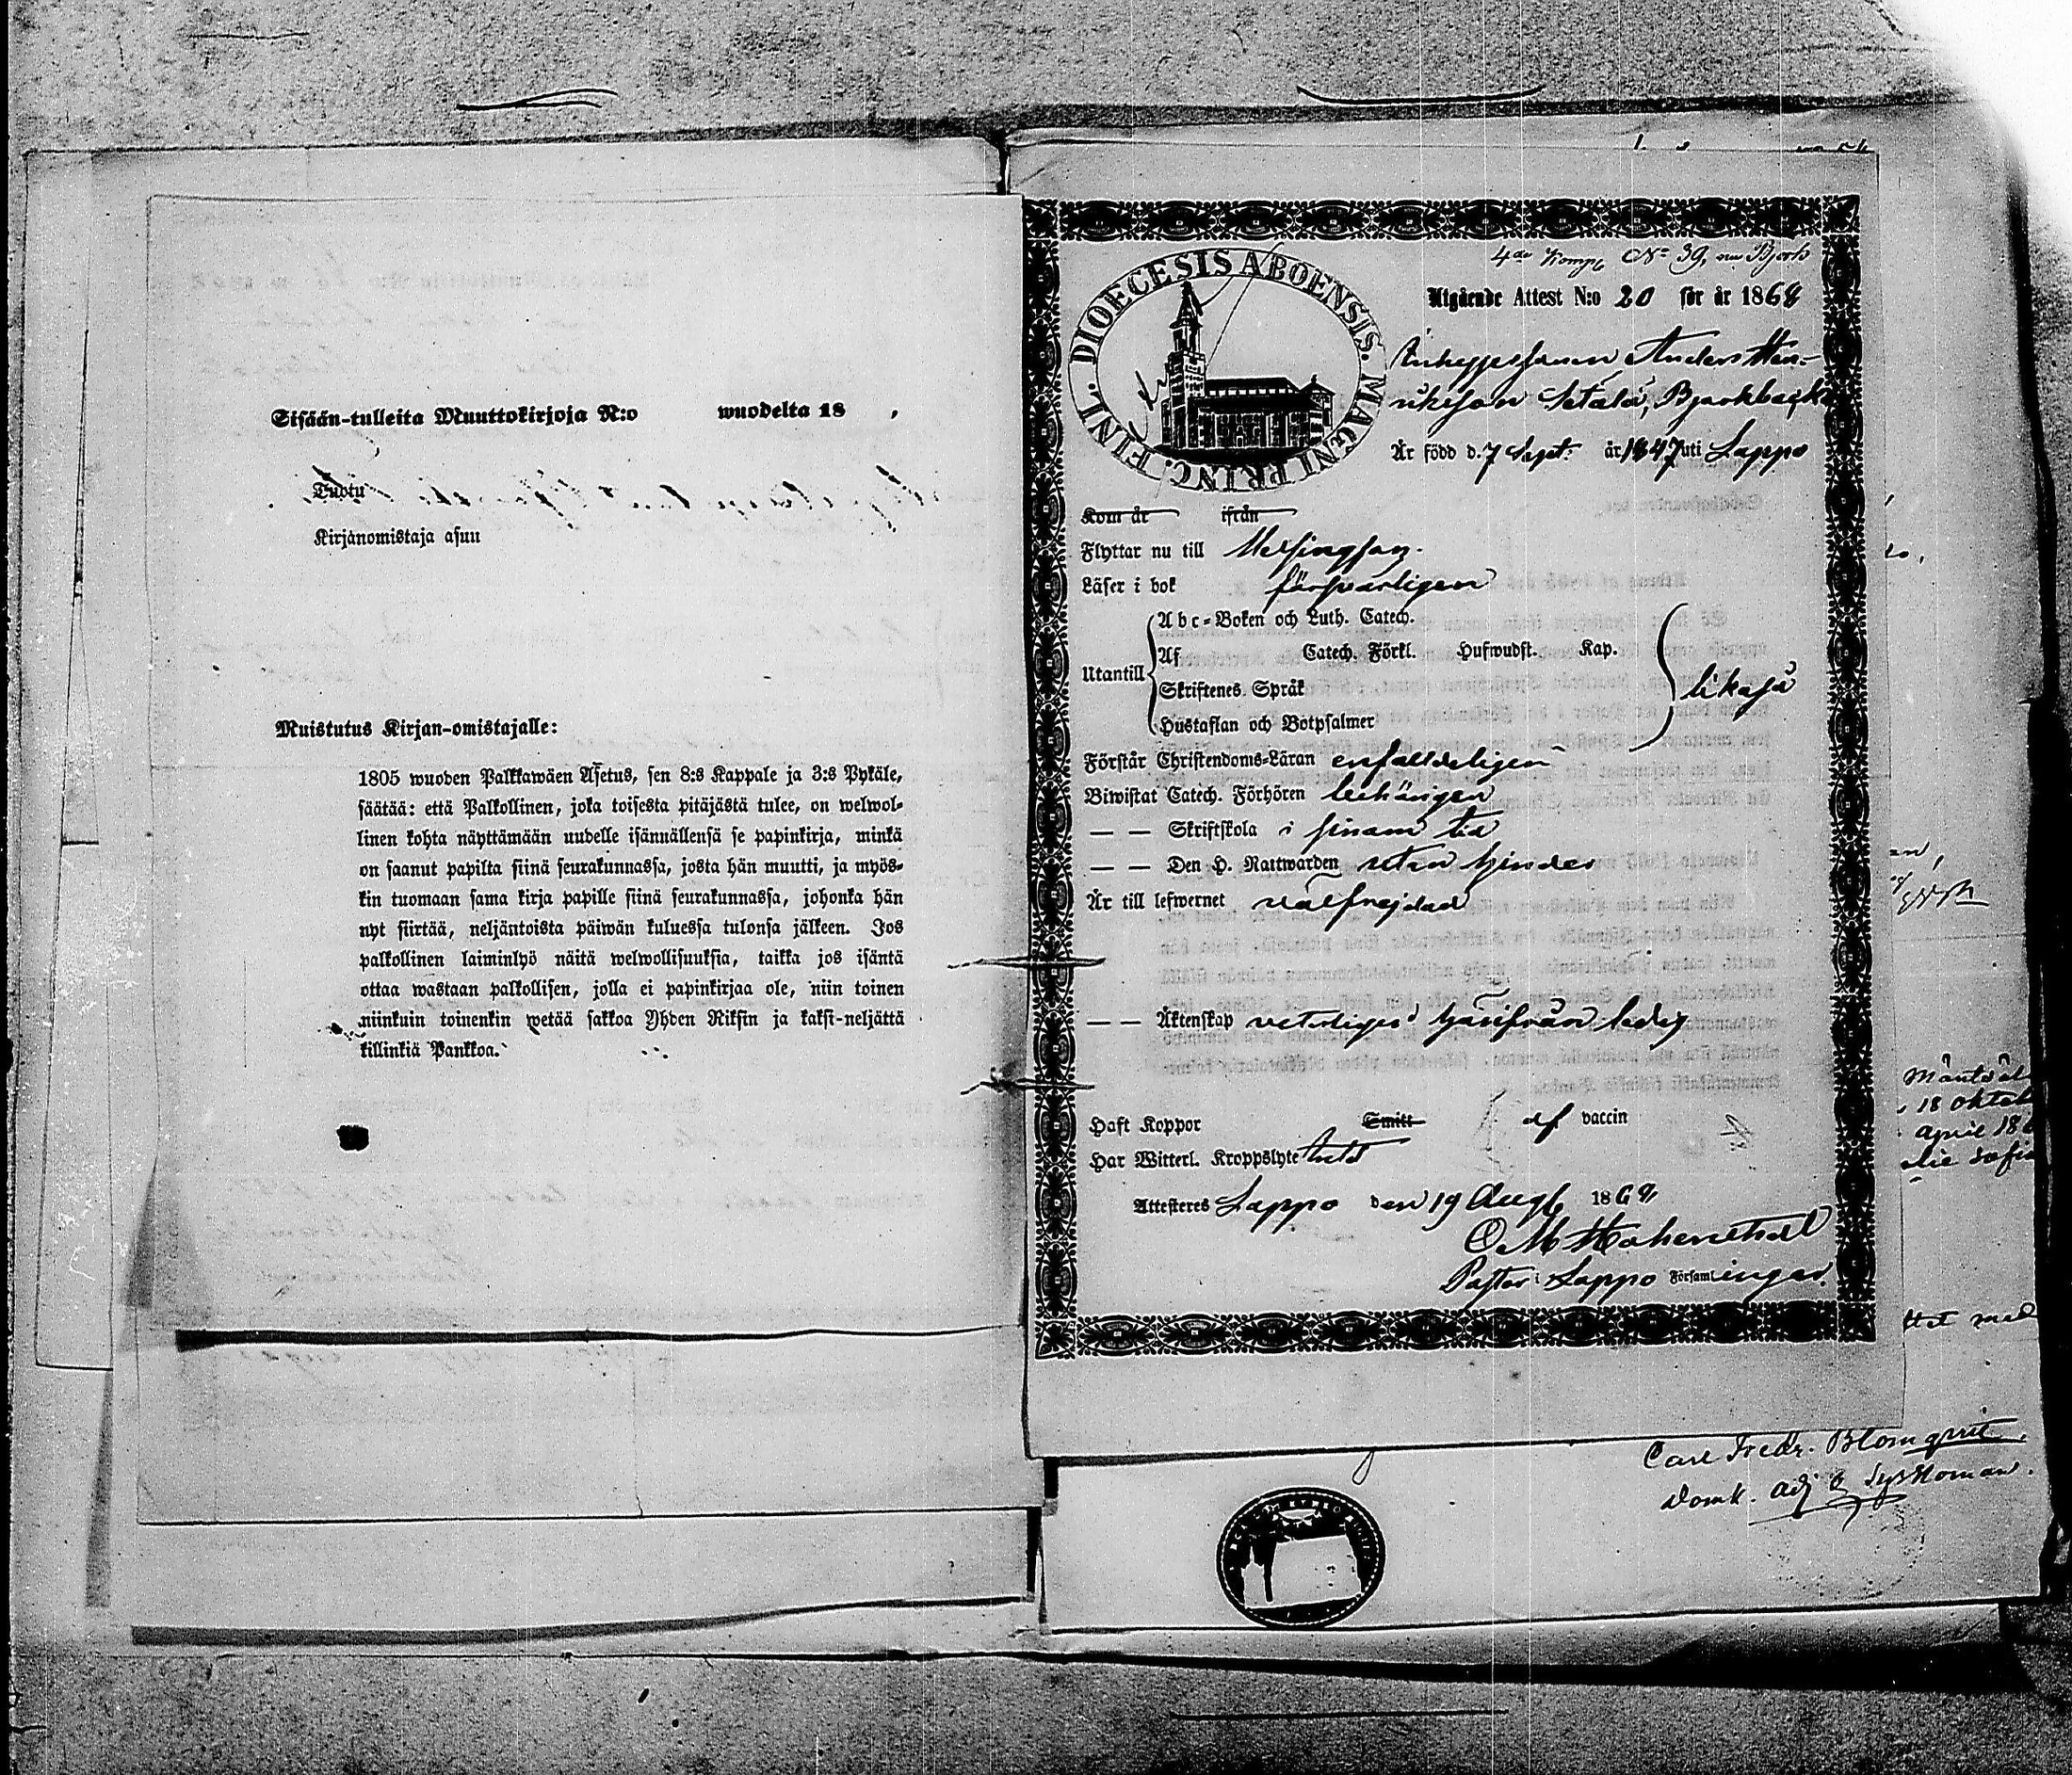 Sisään-tulleita Muuttokirjoja N:o wuodelta 18 ,
Tuotu
Kirjanomistaja asuu
Muistutus Kirjan-omistajalle:
1805 wuoden Palkkawäen Asetus, sen 8:s Kappale ja 3:s Pykäle,
säätää: että Palkollinen, joka toisesta pitäjästä tulee, on welwol-
linen kohta näyttämään uudelle isännällensä se papinkirja, minkä
on saanut papilta siinä seurakunnassa, josta hän muutti, ja myös-
kin tuomaan sama kirja papille siinä seurakunnassa, johonka hän
nyt siirtää, neljäntoista päiwän kuluessa tulonsa jälkeen. Jos
palkollinen laiminlyö näitä welwollisuuksia, taikka jos isäntä
ottaa wastaan palkollisen, jolla ei papinkirjaa ole, niin toinen
niinkuin toinenkin wetää sakkoa Yhden Riksin ja kaksi-neljättä
killinkiä Pankkoa.
DIOECESIS ABOENSIS. MAGNI PRINC. FINL.
4de Komp. No 39,
Utgående Attest N:o 20 för år 1868
Anders Hen-
rikson Setälä, Bjerkbacka
Är född d. 7 Sept. år 1847 uti Lappo
Kom år ifrån
Flyttar nu till Helsingfors.
Läser i bok försvarligen
Abc-Boken och Luth. Catech.
Af Catech. Förkl. Hufwudst. Kap.
Utantill likaså
Skriftenes Språk
Hustaflan och Botpsalmer
Förstår Christendoms-Läran enfaldeligen
Biwistat Catech. Förhören behörigen
— — Skriftskola i sinom tid
— — Den H. Nattwarden utan hinder
Är till lefwernet välfrejdad
— — Äktenskap veterligen härifrån ledig
Haft Koppor Smitt af vaccin
Har Witterl. Kroppslyte intet
Attesteres Lappo den 19 Aug. 1868
Pastor i Lappo Församlingar.
Mäntsäl
18 oktob
april 18
Sofia
med
Carl Fredr. Blomqvist.
Domk. adj & Sysloman.